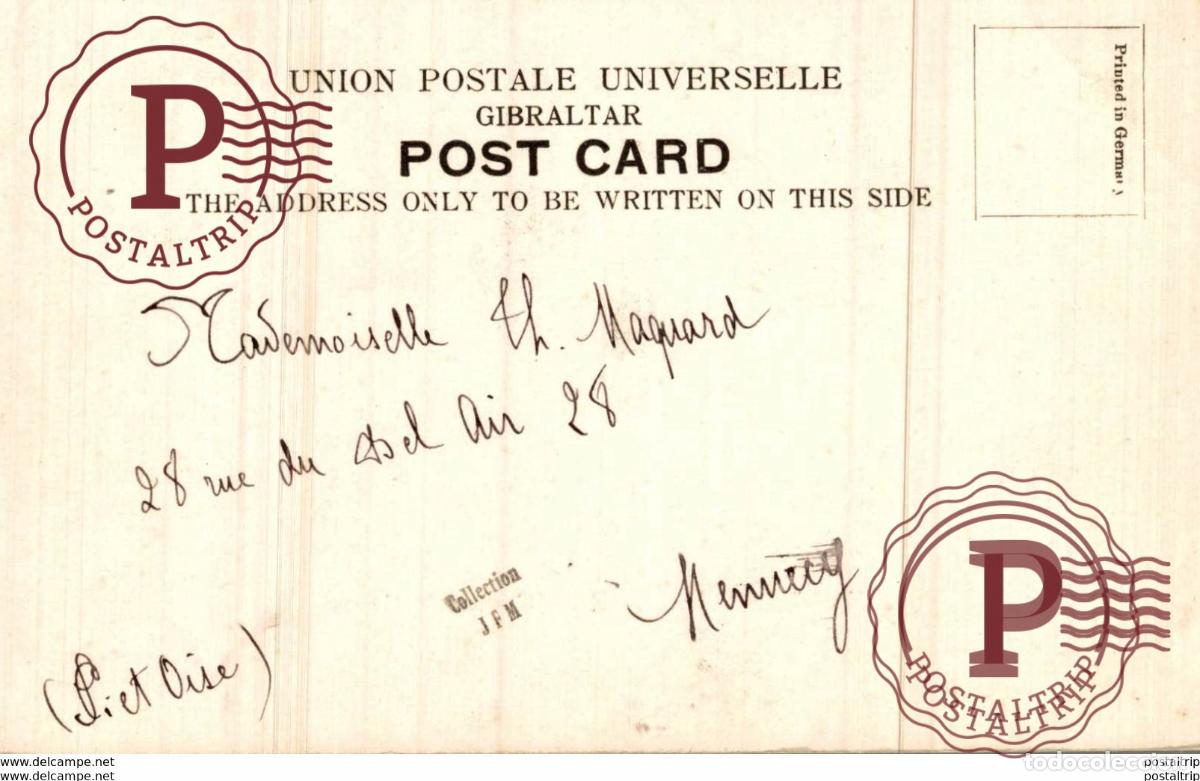 UNION POSTALE UNIVERSELLE
GIBRALTAR
POST CARD
THE ADDRESS ONLY TO BE WRITTEN ON THIS SIDE
Printed in Germany
P
POSTALTRIP
Mademoiselle Th. Maquard
28 rue du Bel Air 28
Collection
J F M
Mennecy
(S et Oise)
P
POSTALTRIP
POSTALTRIP
todocoleccion
www.delcampe.net
www.delcampe.net
postaltrip
postaltrip